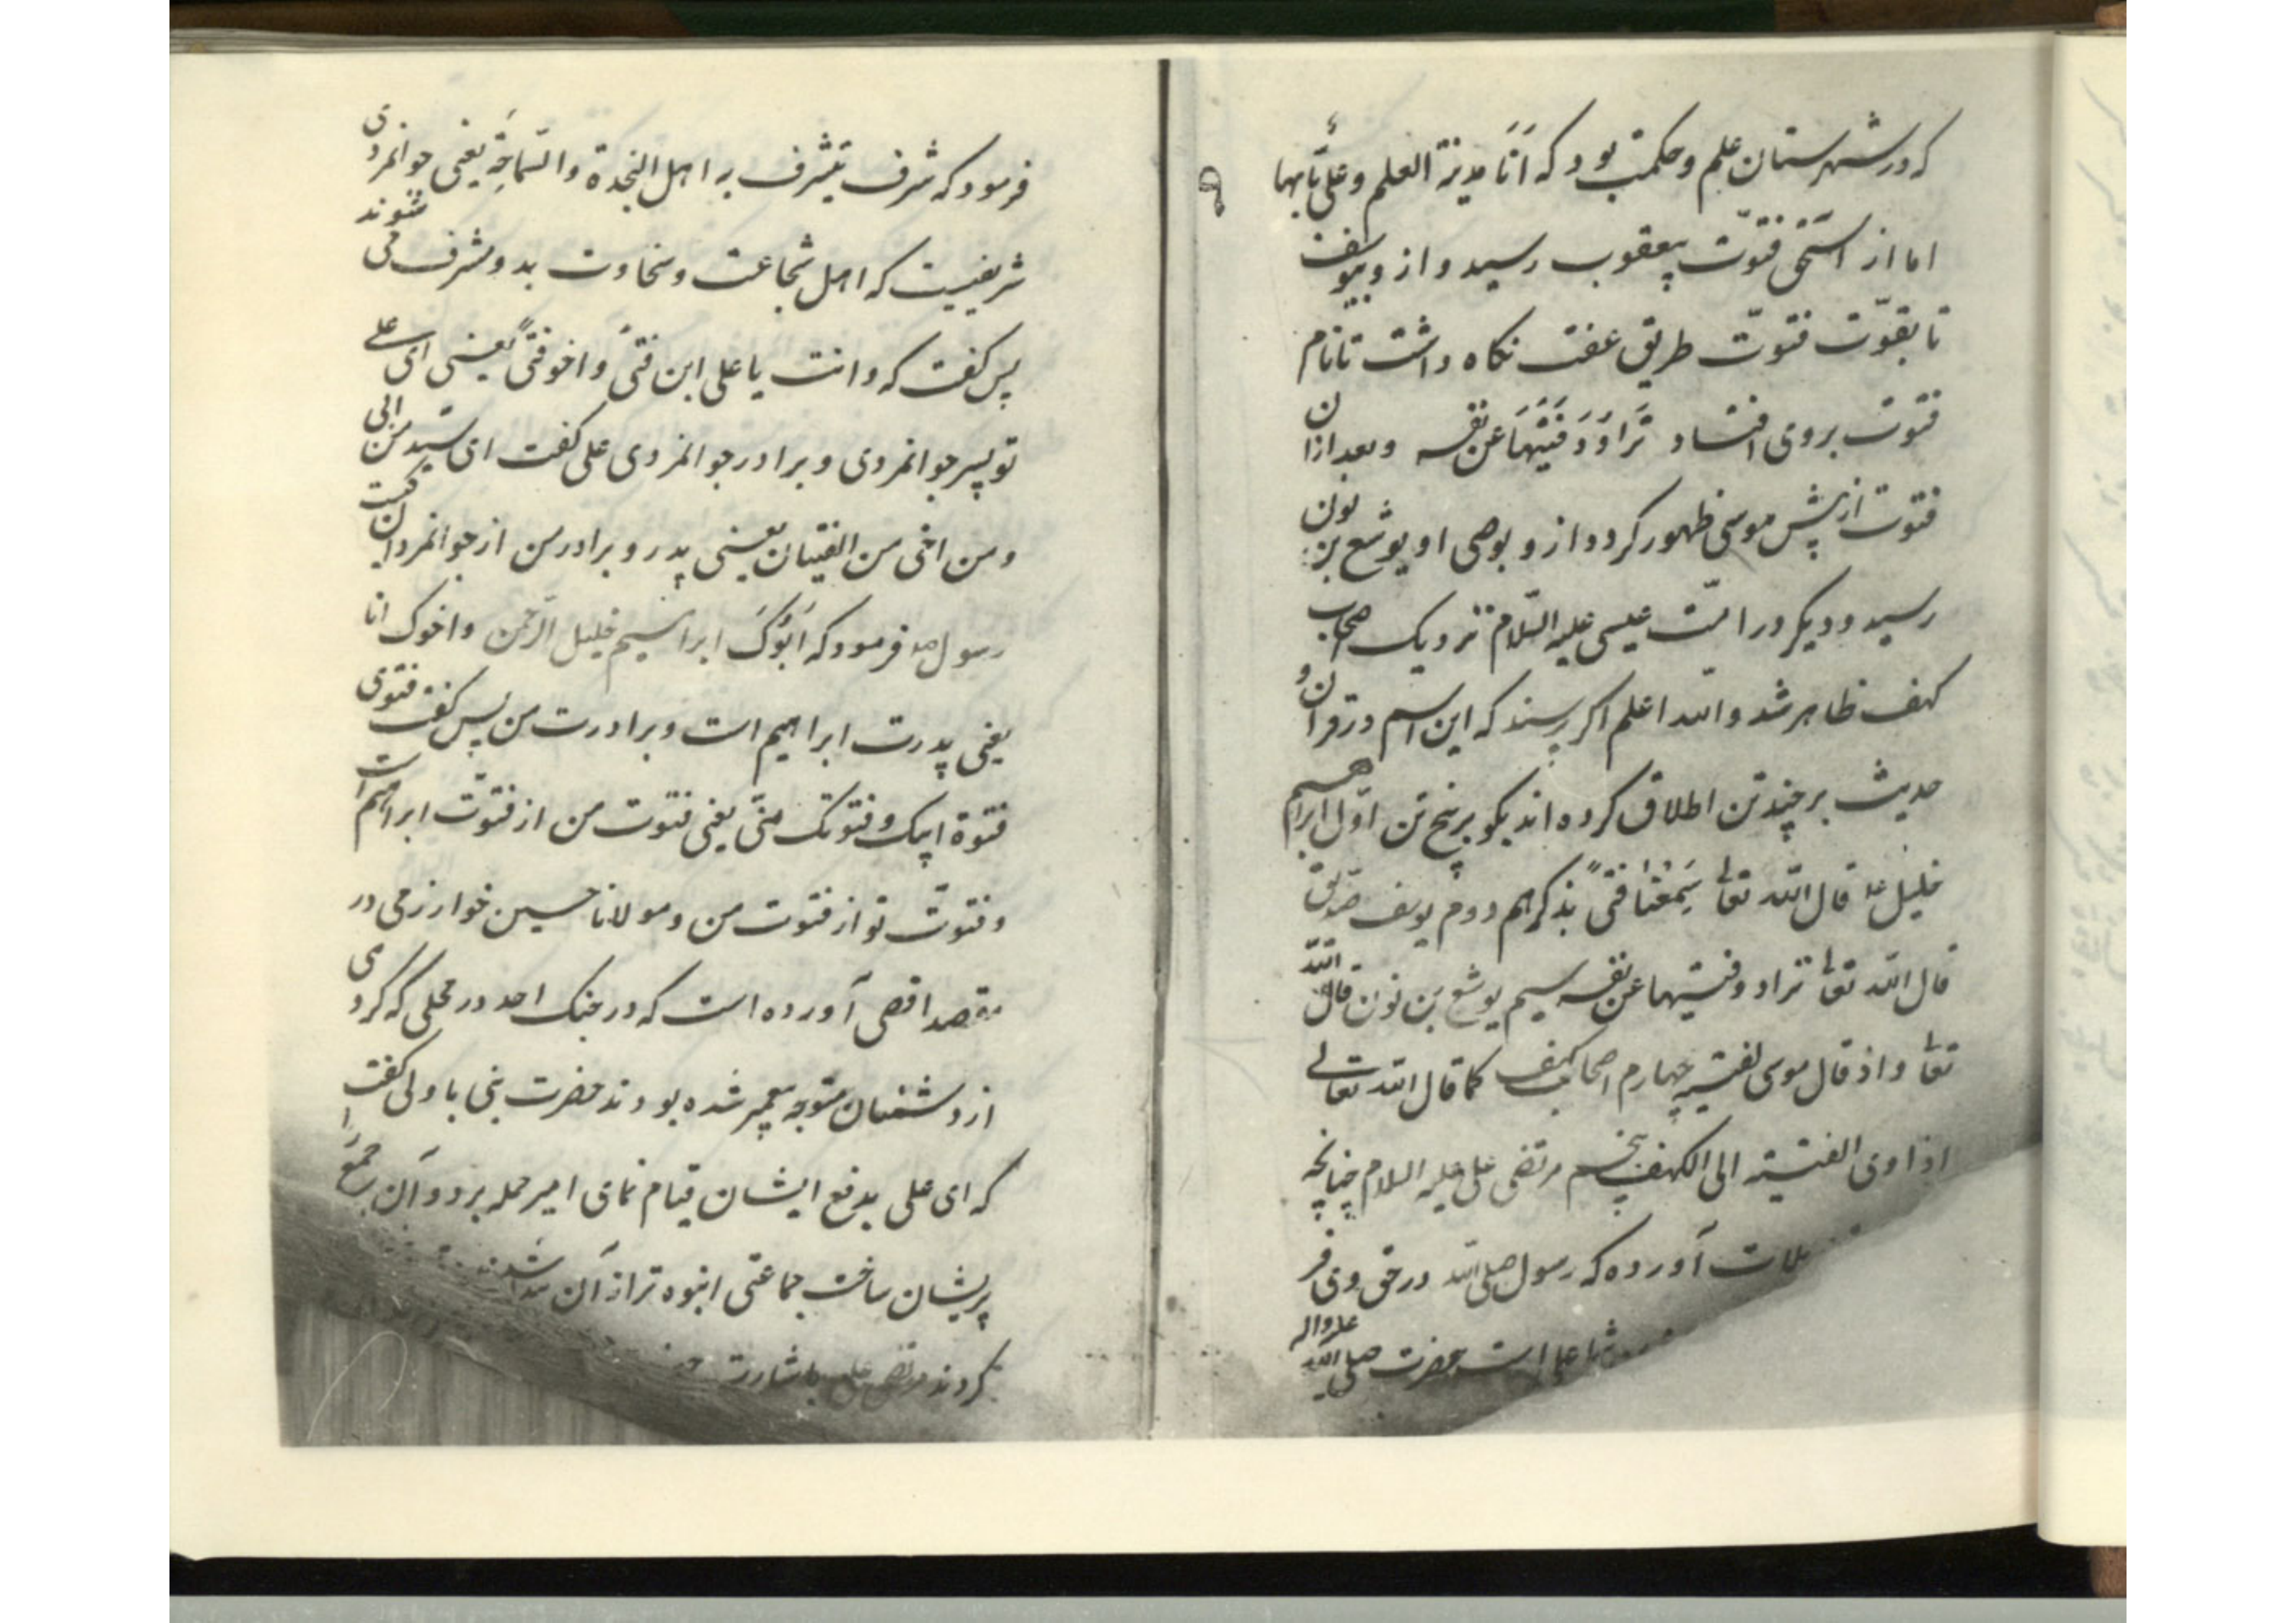 که در شهرستان علم و حکمت بود که اَنَا مدینة العلم و علیٌّ بَابها
اما از اسحٰق فتوّت بیعقوب رسید و ازو بیوسف
تا بقوّت فتوّت طریق عفت نکاه داشت تا نام
فتوت بروی افتاد تُرَاوِدُ فَتٰیهَا عَن نفسه و بعد ازان
فتوت از پیش موسی ظهور کرد و ازو بوصی او یوشع بن نون
رسید و دیکر در امّت عیسی علیه السّلام نزدیک اصحاب
کهف ظاهر شد و الله اعلم اکر پرسند که این اسم در قران و
حدیث بر چند تن اطلاق کرده اند بکو بر پنج تن اوّل ابراهیم
خلیل ع قال الله تعالی سَمِعْنَا فتیً یذکرهم دوم یوسف صدّیق
قال الله تعالی تراود فتیٰها عن نفسه سیم یوشع بن نون قال الله
تعالی و اذ قال موسی لفتیه چهارم اصحاب کهف کما قال الله تعالی
اذ اوی الفتیة الی الکهف پنجم مرتضی علی علیه السلام چنانچه
آورده که رسول صلی الله در حق وی فر
علی است حضرت صلی الله علیه واله
فرمود که شرف یتشرف به اهل النجدة و السّماحَةِ یعنی جوانمردی
شریفیست که اهل شجاعت و سخاوت بدو مشرف می شوند
پس کفت که و انت یا علی ابن فتیً و اخو فتیً یعنی ای علی
تو پسر جوانمردی و برادر جوانمردی علی کفت ای سیّد من ابی
و من اخی من الفتیان یعنی پدر و برادر من از جوانمردان کیست
رسول ص فرمود که اَبُوکَ ابراهیم خلیل الرّحمن و اخوک انا
یعنی پدرت ابراهیم است و برادرت من پس کفت فتوتی
فتوة ابیک و فتوتک منّی یعنی فتوت من از فتوّت ابراهیم است
و فتوّت تو از فتوت من و مولانا حسین خوارزمی در
مقصد اقصی آورده است که در جنک احد در محلی که کروهی
از دشمنان متوجه پیغمبر شده بودند حضرت نبی با ولی کفت
که ای علی بدفع ایشان قیام نمای امیر حمله برد و آن جمع را
پریشان ساخت جماعتی انبوه تر از آن
کردند مرتضی علی باشارت